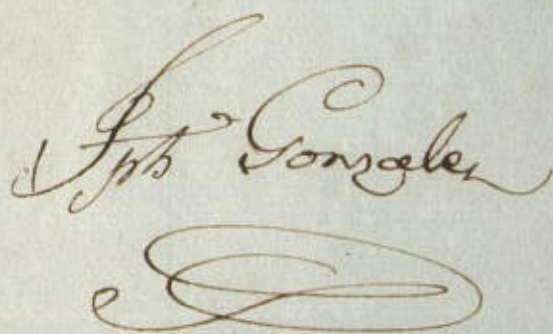 Jph Gonzalez